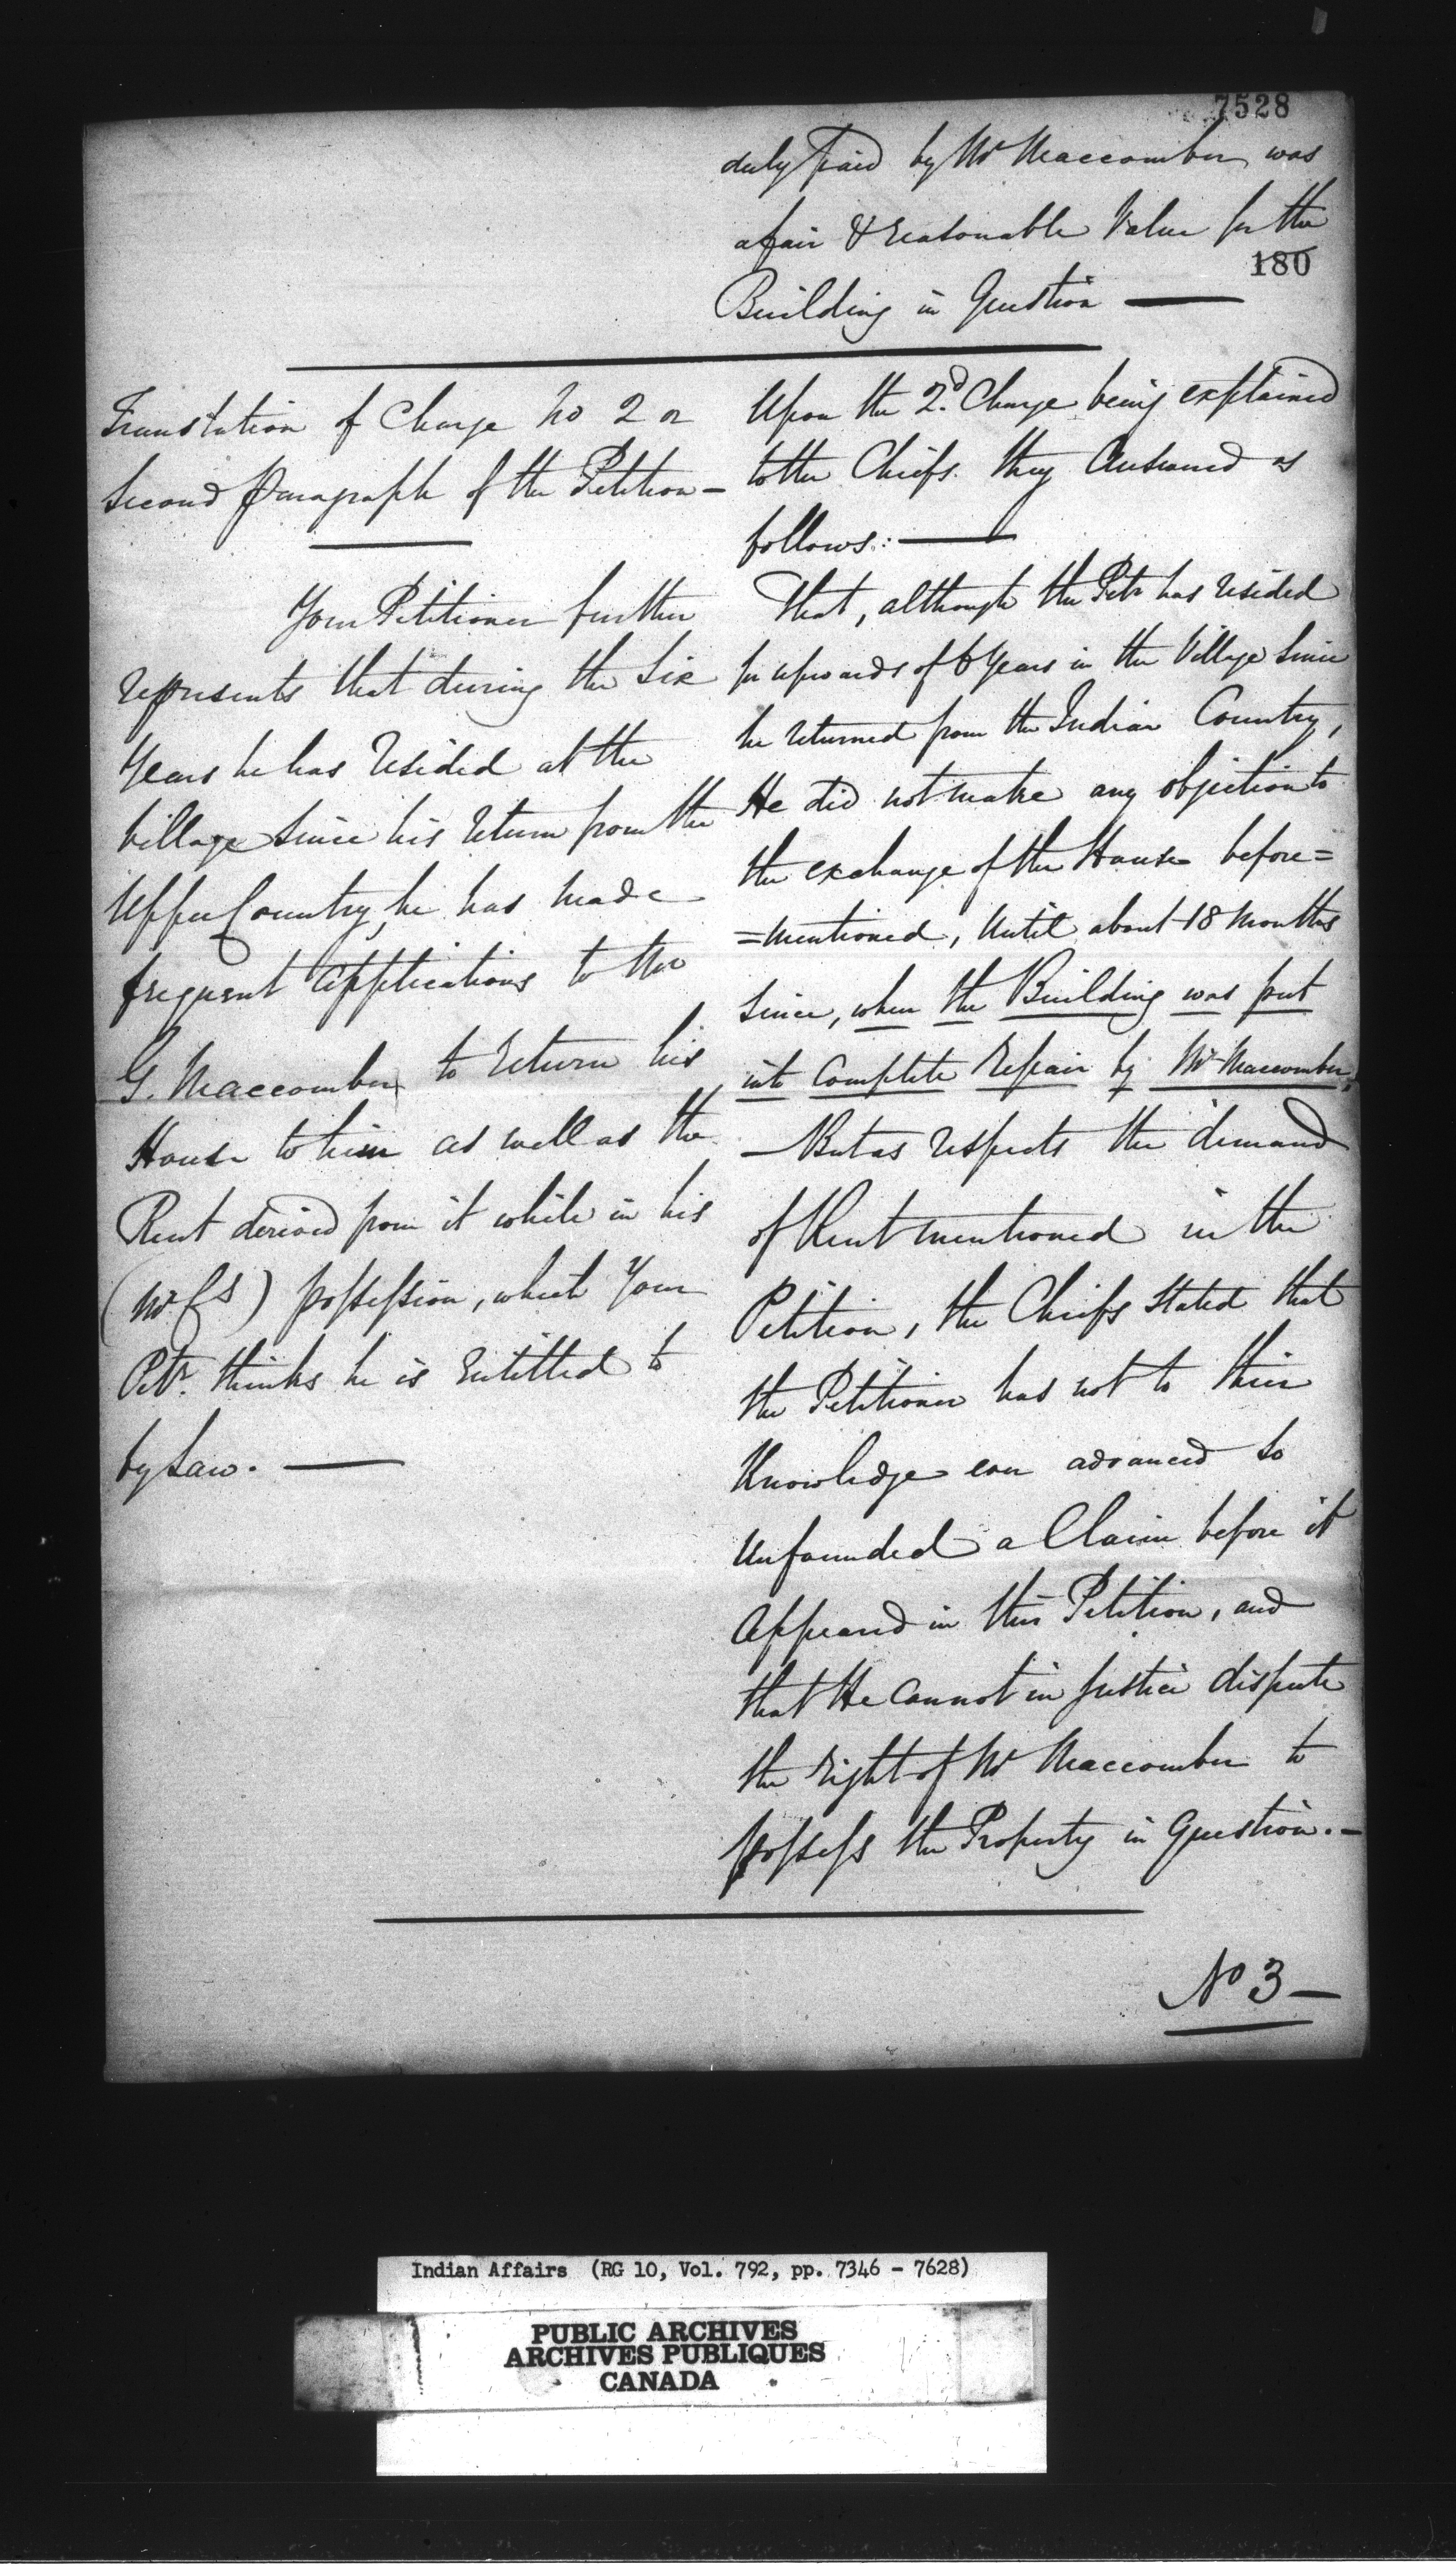 7528
duly paid by Mr Maccomber was
a fair & reasonable Value for the
180
Building in Question —
Translation of Charge No 2 or
Second paragraph of the Petition —
Your Petitioner further
represents that during the Six
Years he has resided at the
Village since his return from the
Upper Country, he has made
frequent applications to the
G. Maccomber to return his
House to him as well as the
Rent derived from it while in his
(Mr Gs) possession, which Your
Petr. thinks he is entitled to
by Law. —
Upon the 2d. Charge being explained
to the Chiefs. they Answered as
follows: —
That, although the Petr has resided
for upwards of 6 Years in the Village Since
he returned from the Indian Country,
He did not make any objection to
the exchange of the House before=
=mentioned, Until about 18 Months
since, when the Building was put
into Complete repair by Mr Maccomber,
— But as respects the demand
of Rent mentioned in the
Petition, the Chiefs stated that
the Petitioner has not to their
Knowledge ever advanced so
Unfounded a Claim before it
Appeared in this Petition, and
that He Cannot in Justice dispute
the right of Mr Maccomber to
possess the Property in Question. —
No 3 —
Indian Affairs (RG 10, Vol. 792, pp. 7346 - 7628)
PUBLIC ARCHIVES
ARCHIVES PUBLIQUES
CANADA